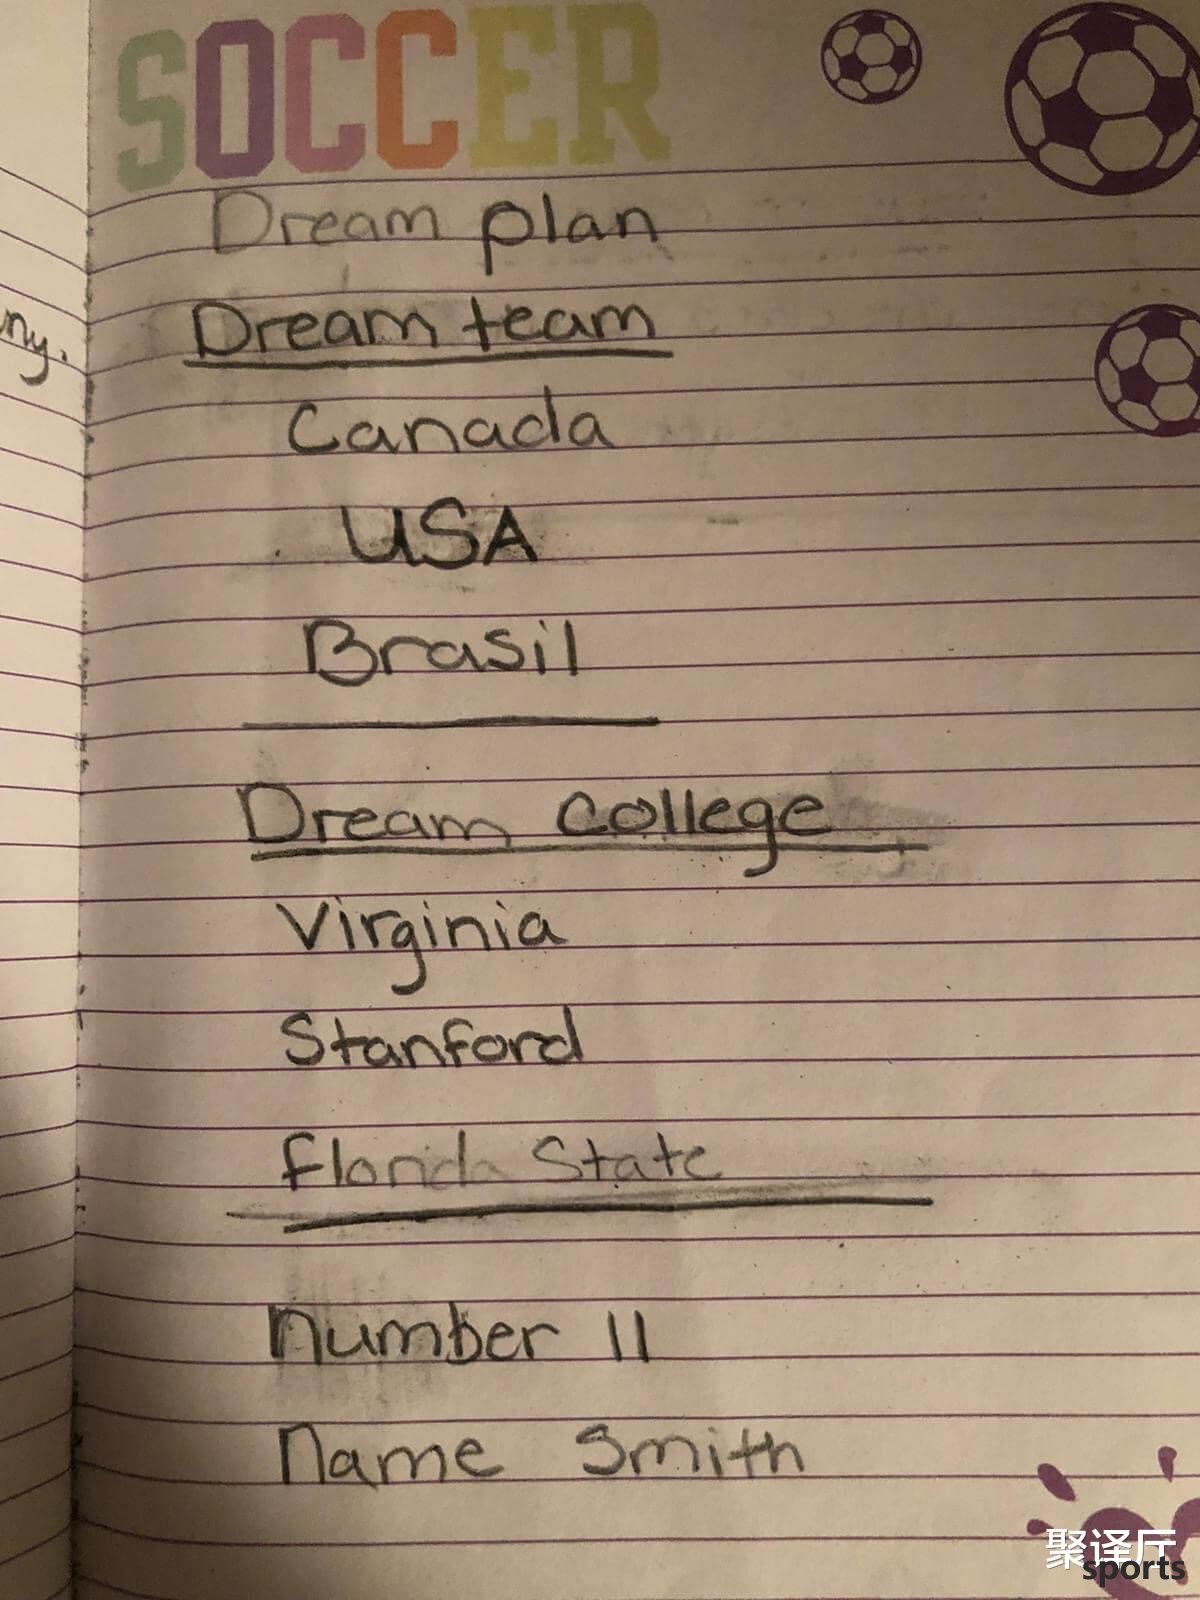 SOCCER
Dream plan
ny.
Dream team
Canada
USA
Brasil
Dream college
Virginia
Stanford
florida State
number 11
name Smith
聚译厅
sports